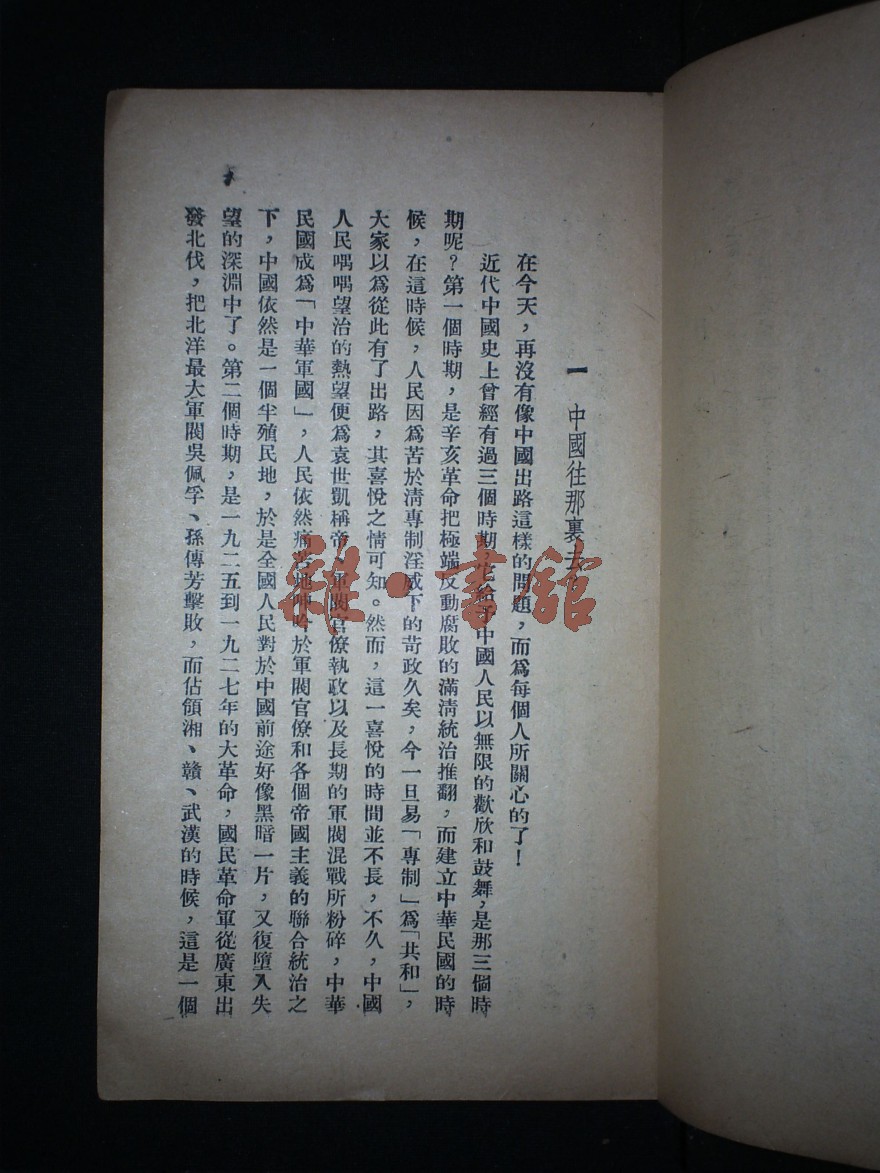 一 中國往那裏去
在今天，再沒有像中國出路這樣的問題，而爲每個人所關心的了！
近代中國史上曾經有過三個時期，它給予中國人民以無限的歡欣和鼓舞，是那三個時
期呢？第一個時期，是辛亥革命把極端反動腐敗的滿淸統治推翻，而建立中華民國的時
候，在這時候，人民因爲苦於淸專制淫威下的苛政久矣，今一旦易「專制」爲「共和」，
大家以爲從此有了出路，其喜悅之情可知。然而，這一喜悅的時間並不長，不久，中國
人民喁喁望治的熱望便爲袁世凱稱帝、軍閥官僚執政以及長期的軍閥混戰所粉碎，中華
民國成爲「中華軍國」，人民依然痛苦地呻吟於軍閥官僚和各個帝國主義的聯合統治之
下，中國依然是一個半殖民地，於是全國人民對於中國前途好像黑暗一片，又復墮入失
望的深淵中了。第二個時期，是一九二五到一九二七年的大革命，國民革命軍從廣東出
發北伐，把北洋最大軍閥吳佩孚、孫傳芳擊敗，而佔領湘、贛、武漢的時候，這是一個
雜·書館